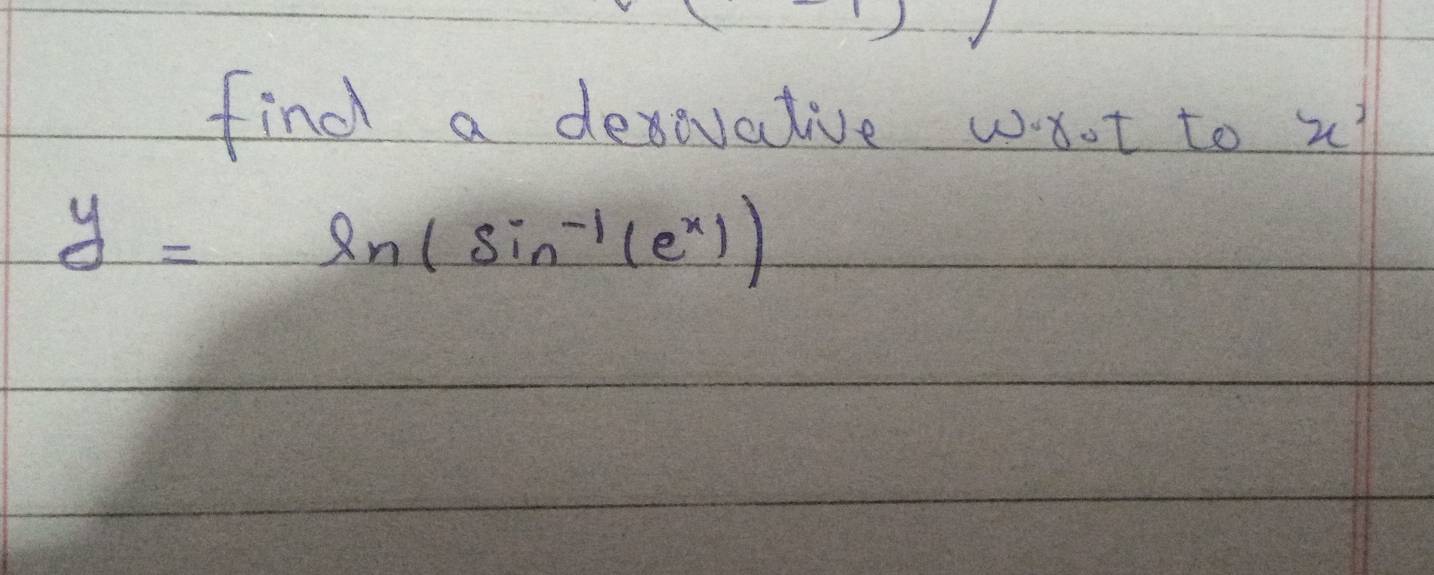 find a derivative w.r.t to x'
y = ln(sin⁻¹(eˣ))